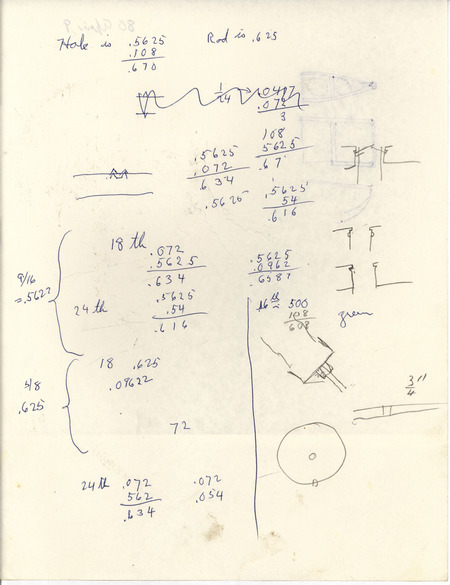 Hole is .5625 Rod is .625
.108
.670
1/24
.072
3
108
.5625 5625
.072 .67
.634
.5625
.5625 .54
.616
18 th .072
.5625 .5625
.634 .0962
.6587
9/16
24 th .5625
.54
.616
16 th 500
108
608
green
18 .625
.08622
5/8
.625
72
3/4"
24 th .072 .072
562 .054
.634